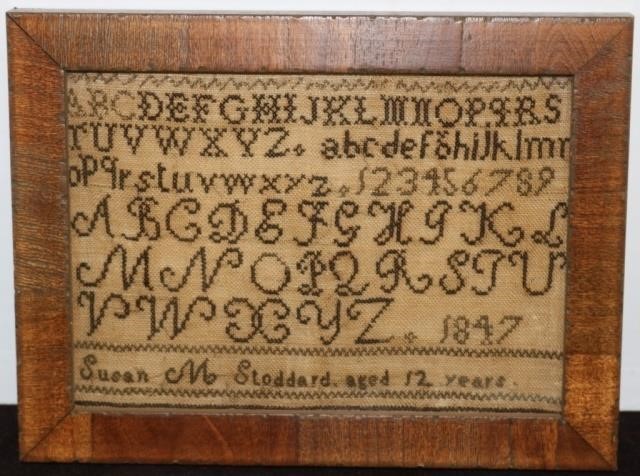 ABCDEFGHIJKLMNOPQRS
TUVWXYZ. abcdefghijklmn
opqrstuvwxyz. 123456789
ABCDEFGHIKL
MNOPQRSTU
VWXYZ. 1847
Susan M Stoddard. aged 12 years.